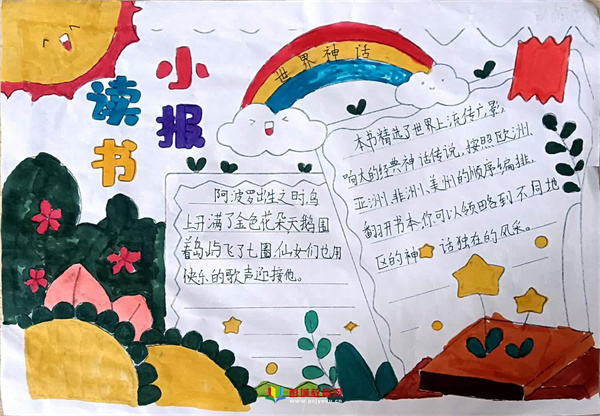 读书
小报
世界神话
阿波罗出生之时,岛
上开满了金色花朵天鹅围
着岛屿飞了七圈,仙女们也用
快乐的歌声迎接他。
本书精选了世界上流传广,影
响大的经典神话传说,按照欧洲、
亚洲、非洲、美洲的顺序编排,
翻开书本,你可以领略到不同地
区的神话独在的风采。